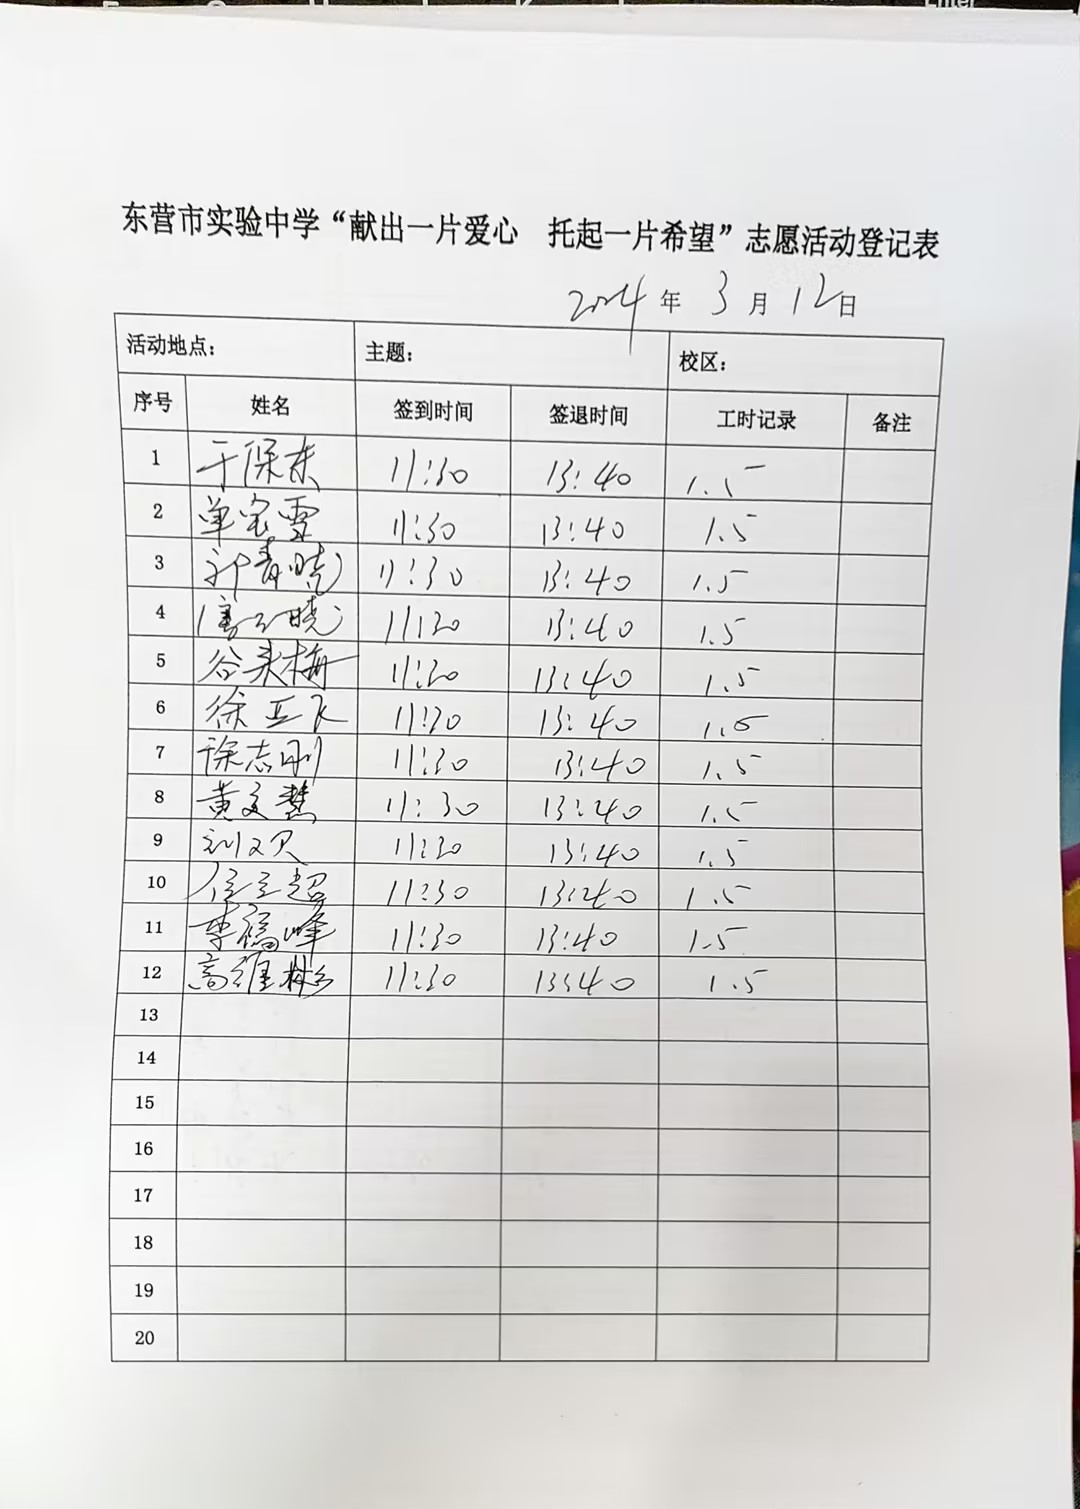 东营市实验中学“献出一片爱心 托起一片希望”志愿活动登记表
2024年3月12日
活动地点： 主题： 校区：
序号 姓名 签到时间 签退时间 工时记录 备注
1 于保东 11:30 13:40 1.5
2 单宝雪 11:30 13:40 1.5
3 青晓 11:30 13:40 1.5
4 晓 11:30 13:40 1.5
5 谷 梅 11:30 13:40 1.5
6 徐亚飞 11:30 13:40 1.5
7 徐志刚 11:30 13:40 1.5
8 黄文慧 11:30 13:40 1.5
9 刘 11:30 13:40 1.5
10 超 11:30 13:40 1.5
11 李福峰 11:30 13:40 1.5
12 高维 11:30 13:40 1.5
13
14
15
16
17
18
19
20